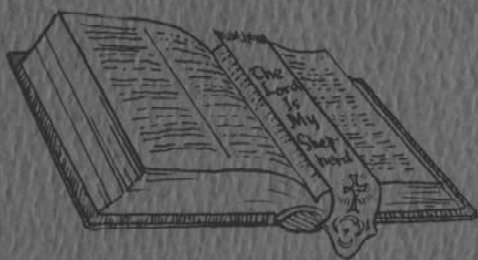 The
Lord
Is
My
Shep
herd